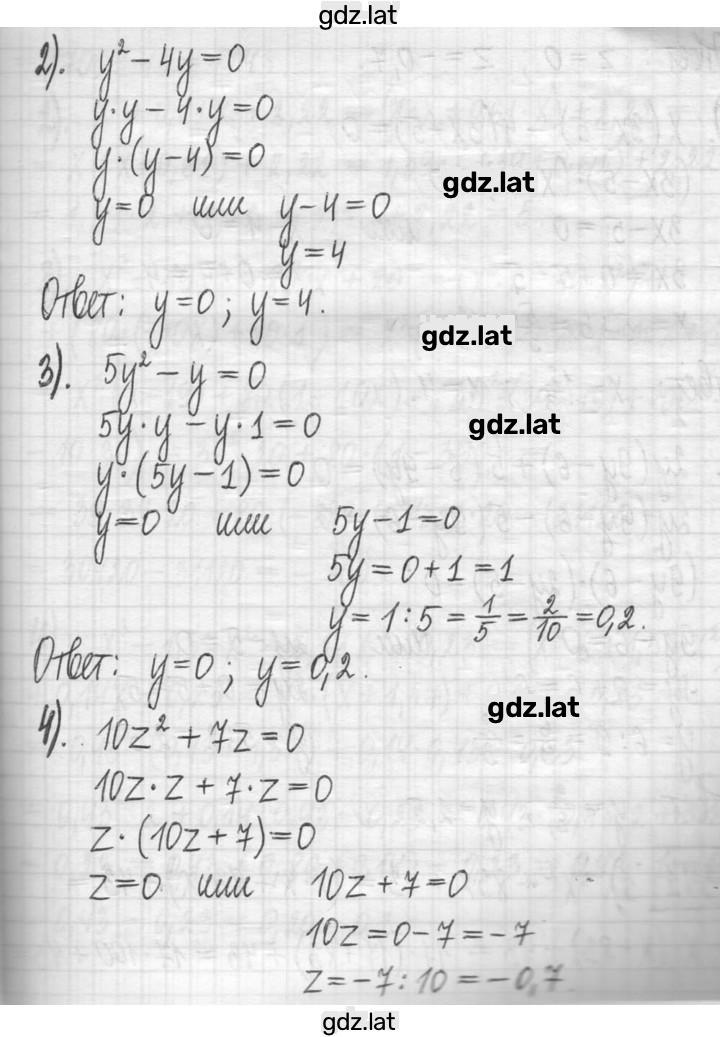 gdz.lat
2). y² – 4y = 0
y·y – 4·y = 0
y·(y–4) = 0
gdz.lat
y=0 или y–4=0
y=4
Ответ: y=0; y=4.
gdz.lat
3). 5y² – y = 0
5y·y – y·1 = 0
gdz.lat
y·(5y–1)=0
y=0 или 5y–1=0
5y=0+1=1
y=1:5=1/5=2/10=0,2.
Ответ: y=0; y=0,2.
gdz.lat
4). 10z² + 7z = 0
10z·z + 7·z = 0
z·(10z+7)=0
z=0 или 10z+7=0
10z=0–7=–7
z=–7:10=–0,7
gdz.lat